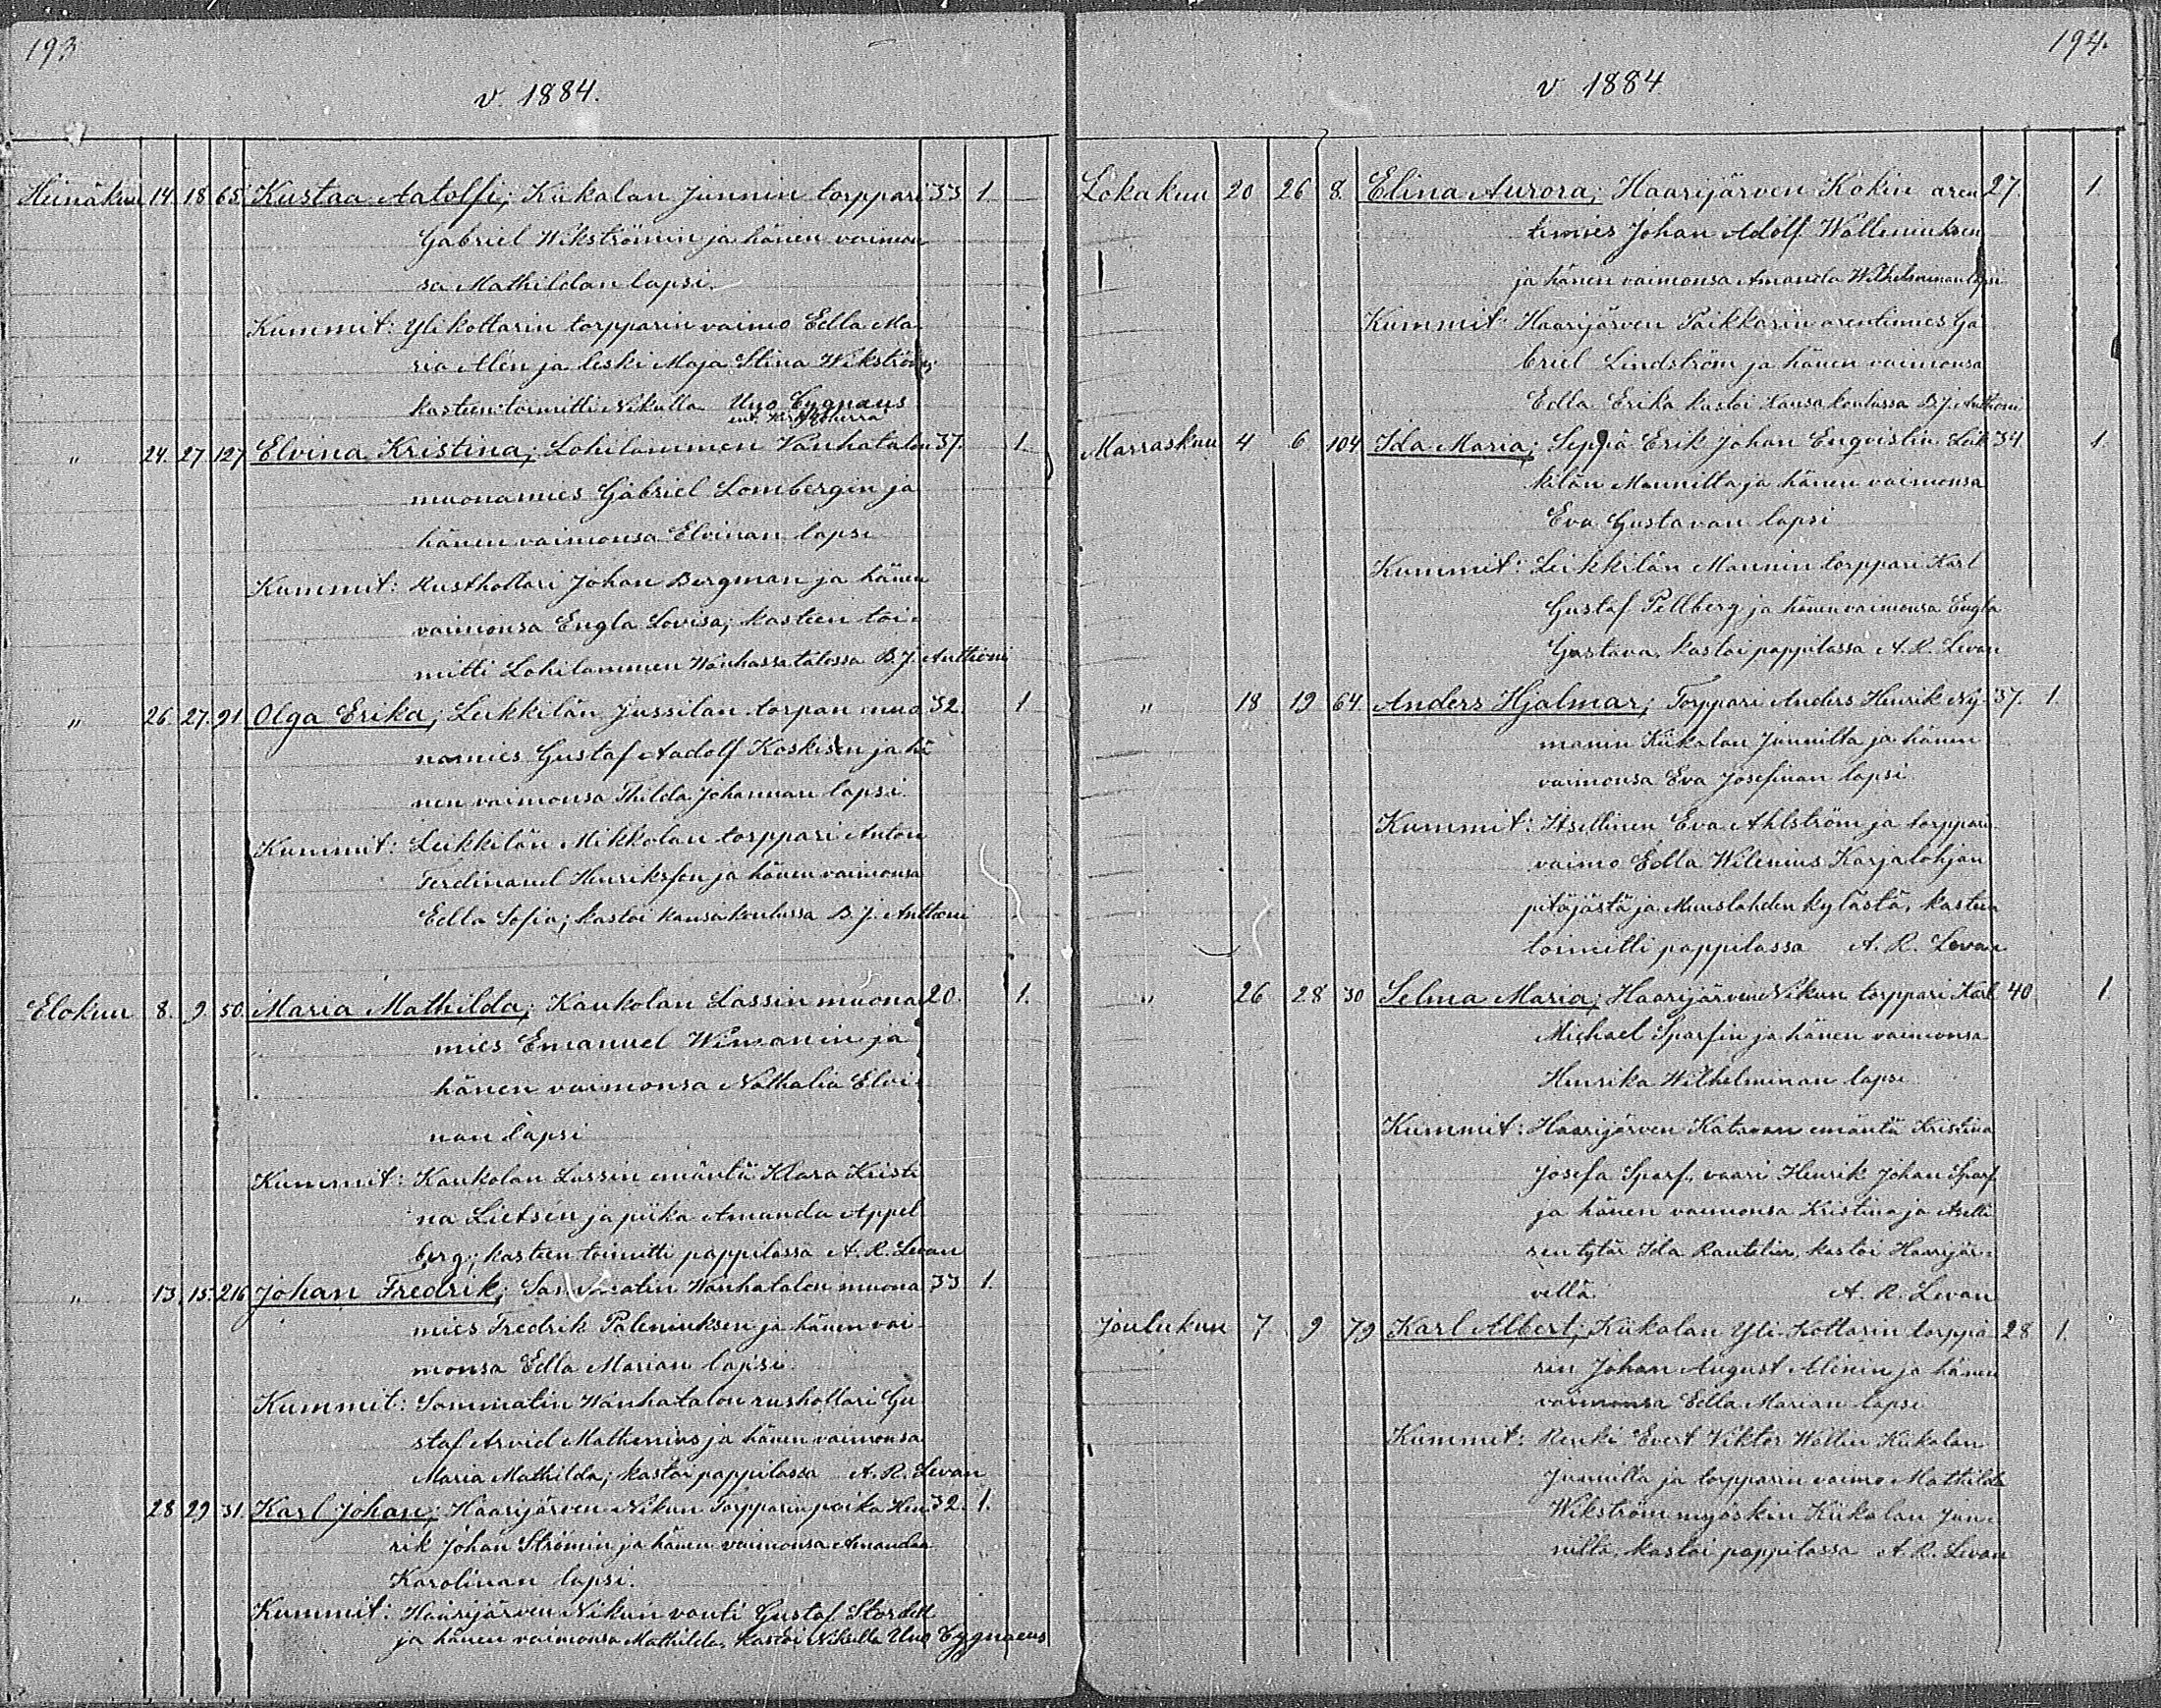 193
v. 1884.
Heinäkuu 14. 18 65 Kustaa Aatolfi; Kiikalan Junnin torppari 33 1.
Gabriel Wikströmin ja hänen vaimon
sa Mathildan lapsi.
Kummit: Yli kottarin torpparin vaimo Edla Ma
ria Alén ja leski Maja Stina Wikström;
kasteen toimitti Nikulla Uno Cygnaeus
" 24. 27. 127 Elvina Kristina; Lohilammen Vanhatalon 37. 1.
muonamies Gabriel Lombergin ja
hänen vaimonsa Elvinan lapsi
Kummit: Rusthollari Johan Bergman ja hänen
vaimonsa Engla Lovisa; kasteen toi-
mitti Lohilammen Wanhassa talossa B. J. Anttoni
" 26. 27. 91 Olga Erika; Leikkilän Jussilan torpan muo 32. 1
namies Gustaf Aadolf Koskisen ja hä
nen vaimonsa Thilda Johannan lapsi.
Kummit: Leikkilän Mikkolan torppari Anton
Ferdinand Henriksson ja hänen vaimonsa
Edla Sofia; kastoi kansakoulussa B. J. Anttoni
Elokuu 8. 9. 50. Maria Mathilda; Kaukolan Lassin muona 20. 1.
mies Emanuel Wimanin ja
hänen vaimonsa Nathalia Elvi-
nan lapsi
Kummit: Kaukolan Lassin emäntä Klara Kristi
na Lietsén ja piika Amanda Appel
berg; kasteen toimitti pappilassa A. R. Levan
" 13. 15. 216 Johan Fredrik; Wanhatalon muona 33 1.
mies Fredrik Paleniuksen ja hänen vai-
monsa Edla Marian lapsi.
Kummit: Sammatin Wanhatalon rushollari Gu
staf Arvid Mathenius ja hänen vaimonsa
Maria Mathilda; kastoi pappilassa A. R. Levan
28 29 31. Karl Johan; Haarijärven Nikun Torpparin poika Hen 32. 1.
rik Johan Strömin ja hänen vaimonsa Amanda
Karolinan lapsi.
Kummit: Haarijärven Nikun vouti Gustaf Stordell
ja hänen vaimonsa Mathilda, kastoi Nikulla Uno Cygnaeus
194.
v 1884
Lokakuu 20 26 8. Elina Aurora; Haarijärven Kokin aren 27. 1
timies Johan Adolf Walleniuksen
ja hänen vaimonsa Amanda Wilhelminan lapsi
Kummit: Haarijärven Paikkarin arentimies Ga
briel Lindström ja hänen vaimonsa
Edla Erika kastoi Kansakoulussa B. J. Anttoni
Marraskuu 4 6 104 Ida Maria; Seppä Erik Johan Enqvistin Leik 34 1
kilän Mannilta ja hänen vaimonsa
Eva Gustavan lapsi
Kummit: Leikkilän Mannin torppari Karl
Gustaf Pellberg ja hänen vaimonsa Engla
Gustava, kastoi pappilassa A. R. Levan
" 18 19 64. Anders Hjalmar; Torppari Anders Henrik Ny- 37. 1.
manin Kiikalan Junnilta ja hänen
vaimonsa Eva Josefinan lapsi
Kummit: Itsellinen Eva Ahlström ja torpparin
vaimo Edla Wilenius Karjalohjan
pitäjästä ja Muuslahden kylästä, kasteen
toimitti pappilassa A. R. Levan
" 26 28 30 Selma Maria; Haarijärven Nikun torppari Karl 40 1
Michael Sparfin ja hänen vaimonsa
Henrika Wilhelminan lapsi
Kummit: Haarijärven Katavan emäntä Kristina
Josefa Sparf, vaari Henrik Johan Sparf
ja hänen vaimonsa Kristina ja Antti
sen tytär Ida Rautelin, kastoi Haarijär-
vellä. A. R. Levan
Joulukuu 7 9 79 Karl Albert; Kiikalan Yli-Kottarin torppa 28 1.
rin Johan August Alénin ja hänen
vaimonsa Edla Marian lapsi
Kummit: Renki Evert Viktor Wallin Kiikalan
Junnilta ja torpparin vaimo Mathilda
Wikström myöskin Kiikalan Jun-
nilta, kastoi pappilassa A. R. Levan